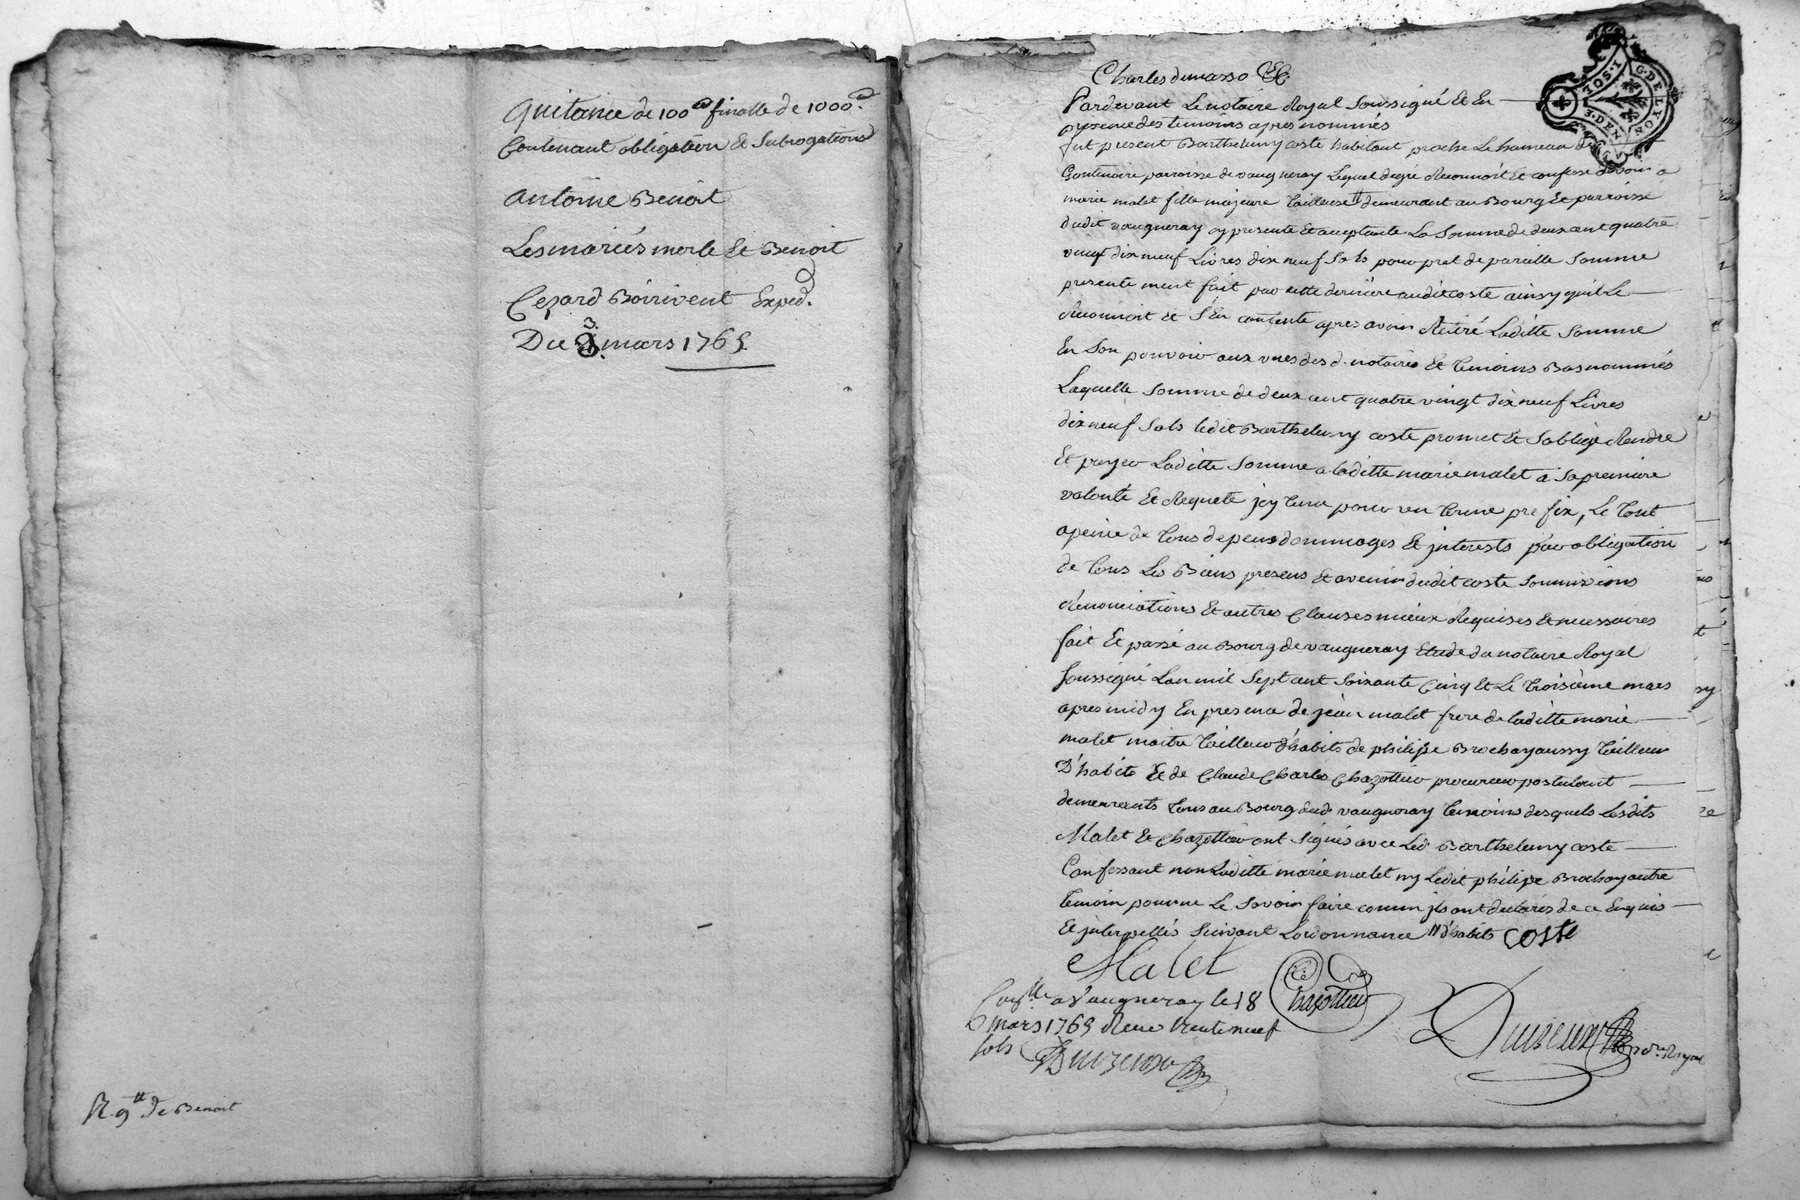 quitance de 100# finalle de 1000#
Contenant obligation Et Subrogations
antoine Benoit
Les mariés merle Et Benoit
Cezard Boirivent Exped.
Du 3. mars 1765.
R. 9# de Benoit
Charles demasso &c
Pardevant Le notaire Royal Soussigné Et En
presence des temoins apres nommés
fut present Barthelemy coste habitant proche Le hameau de
paroisse de vaugneray Lequel degré Reconnoit Et confesse devoir a
marie malet fille majeure tailleuse # demeurant au Bourg Et parroisse
dudit vaugneray cy presente Et acceptante La Somme de deux cent quatre
vingt dix neuf Livres dix neuf Sols pour pret de pareille Somme
presentement fait par cette derniere audit coste ainsy quil Le
Reconnoit Et S'En contente apres avoir Retiré Laditte Somme
En Son pouvoir aux vues des d. notaire Et temoins Bas nommés
Laquelle Somme de deux cent quatre vingt dix neuf Livres
dix neuf Sols ledit Barthelemy coste promet Et Soblige Rendre
Et payer Laditte Somme a laditte marie malet a Sa premiere
volonté Et Requete jcy tenu pour un terme prefix, Le tout
a peine de tous depens dommages Et jnterests par obligation
de tous Les Biens presens Et avenir dudit coste Soumixions
Renonciations Et autres Clauses mieux Requises Et necessaires
fait Et passé au Bourg de vaugneray Etude du notaire Royal
Soussigné Lan mil Sept cent Soixante Cinq Et Le troisieme mars
apres midy En presence de jean malet frere de laditte marie
malet maitre tailleur d'habits de philipe Brochay aussy tailleur
D'habits Et de Claude Charles Chazottier procureur postulant
demeurants tous au Bourg dud. vaugneray temoins desquels Lesdits
Malet Et Chazottier ont Signés avec Led. Barthelemy coste
Confessant non Laditte marie malet ny Ledit philipe Brochay autre
temoin pour ne Le Savoir faire comm jls ont declarés de ce Enquis
Et jnterpellés Suivant Lordonnance # d'habits COSTE
Malet
Chazottier
Conlle a Vaugneray le 18
mars 1765 Receu trente neuf
sols
Royal
G. DE LYON
1. SOL